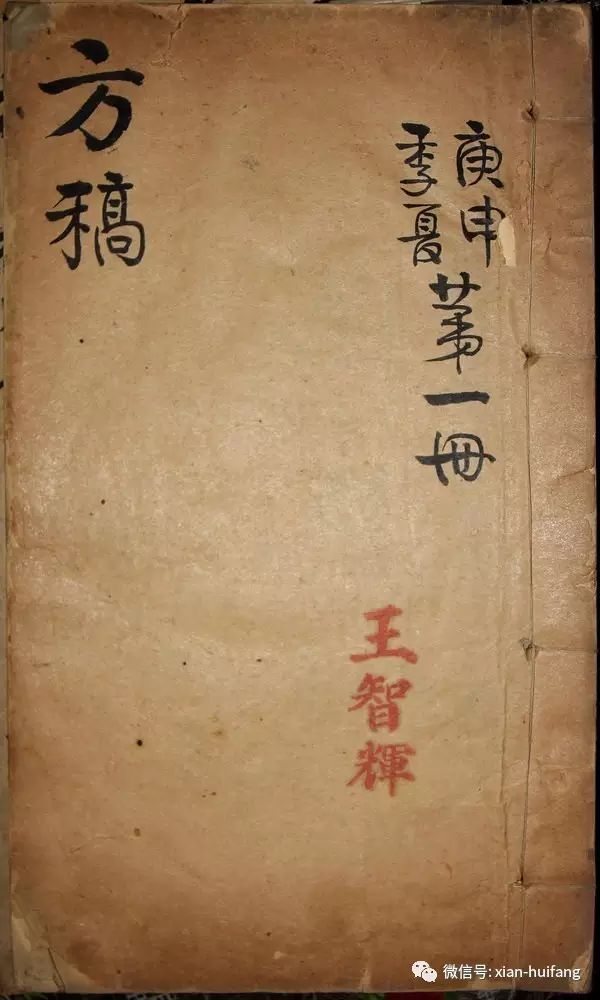 庚申
季夏
第一冊
方稿
王智輝
微信号: xian-huifang